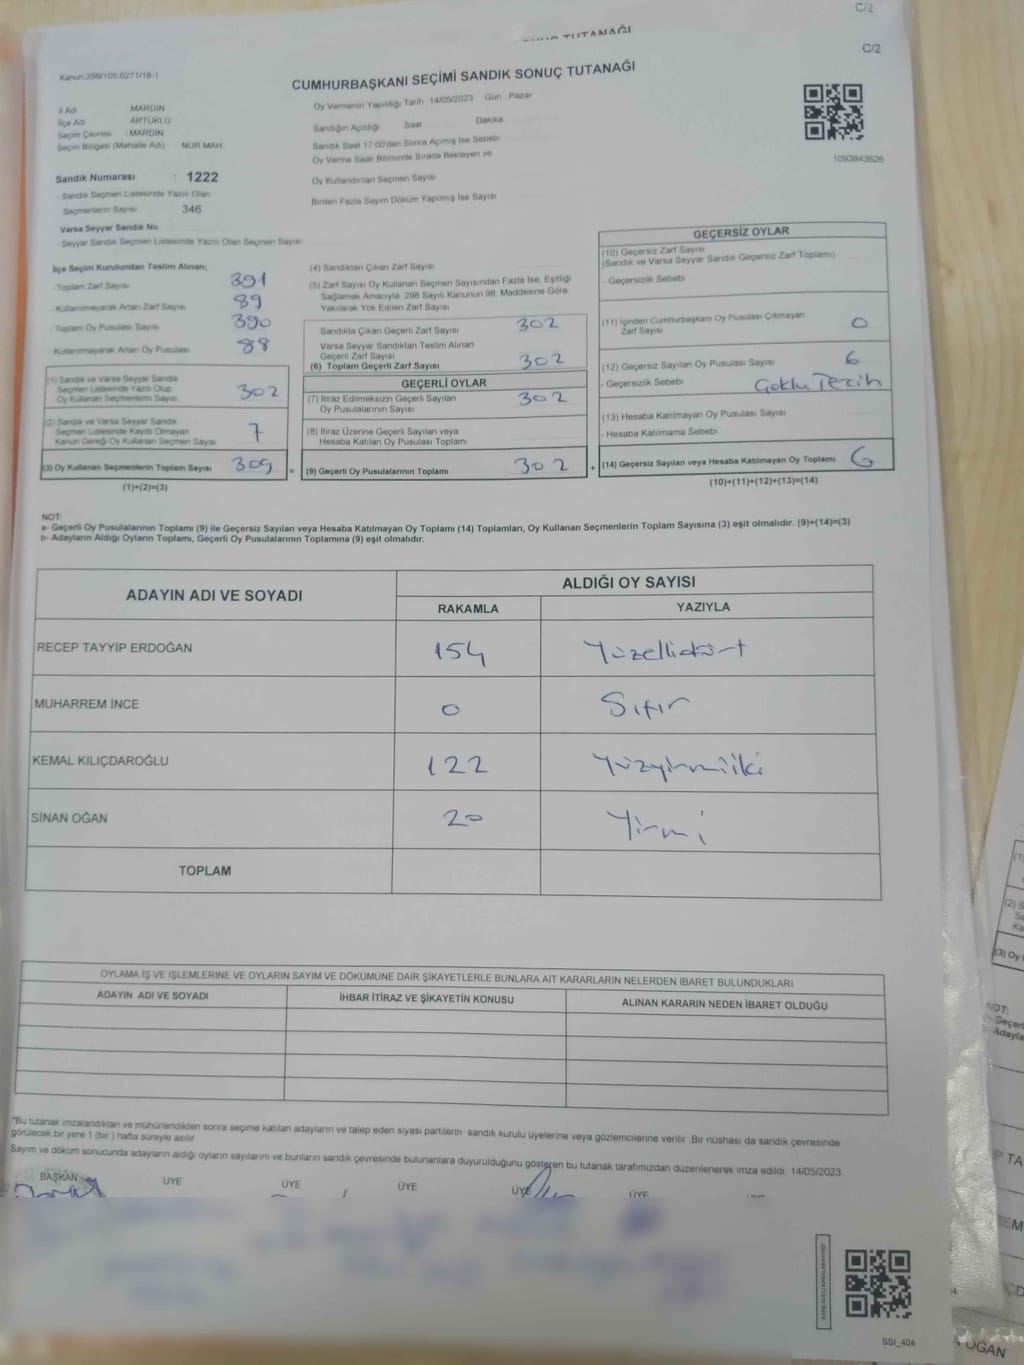 C/2
C/2
Kanun 298/105,6271/18-1
CUMHURBAŞKANI SEÇİMİ SANDIK SONUÇ TUTANAĞI
İl Adı MARDİN
İlçe Adı ARTUKLU
Seçim Çevresi : MARDİN
Seçim Bölgesi (Mahalle Adı) NUR MAH.
Sandık Numarası : 1222
- Sandık Seçmen Listesinde Yazılı Olan
Seçmenlerin Sayısı 346
Varsa Seyyar Sandık No
- Seyyar Sandık Seçmen Listesinde Yazılı Olan Seçmen Sayısı
Oy Vermenin Yapıldığı Tarih 14/05/2023 Gün Pazar
Sandığın Açıldığı Saat Dakika
Sandık Saat 17:00'den Sonra Açılmış İse Sebebi
Oy Verme Saati Bitiminde Sırada Bekleyen ve
Oy Kullandırılan Seçmen Sayısı
Birden Fazla Sayım Döküm Yapılmış İse Sayısı
1093843626
İlçe Seçim Kurulundan Teslim Alınan;
- Toplam Zarf Sayısı 391
- Kullanılmayarak Artan Zarf Sayısı 89
- Toplam Oy Pusulası Sayısı 390
- Kullanılmayarak Artan Oy Pusulası 88
(1) Sandık ve Varsa Seyyar Sandık
Seçmen Listesinde Yazılı Olup
Oy Kullanan Seçmenlerin Sayısı 302
(2) Sandık ve Varsa Seyyar Sandık
Seçmen Listesinde Kayıtlı Olmayan
Kanun Gereği Oy Kullanan Seçmen Sayısı 7
(3) Oy Kullanan Seçmenlerin Toplam Sayısı 309 =
(1)+(2)=(3)
(4) Sandıktan Çıkan Zarf Sayısı
(5) Zarf Sayısı Oy Kullanan Seçmen Sayısından Fazla İse, Eşitliği
Sağlamak Amacıyla, 298 Sayılı Kanunun 98. Maddesine Göre
Yakılarak Yok Edilen Zarf Sayısı
Sandıkta Çıkan Geçerli Zarf Sayısı 302
Varsa Seyyar Sandıktan Teslim Alınan
Geçerli Zarf Sayısı
(6) Toplam Geçerli Zarf Sayısı 302
GEÇERLİ OYLAR
(7) İtiraz Edilmeksizin Geçerli Sayılan
Oy Pusulalarının Sayısı 302
(8) İtiraz Üzerine Geçerli Sayılan veya
Hesaba Katılan Oy Pusulası Toplamı
(9) Geçerli Oy Pusulalarının Toplamı 302 +
GEÇERSİZ OYLAR
(10) Geçersiz Zarf Sayısı
(Sandık ve Varsa Seyyar Sandık Geçersiz Zarf Toplamı)
- Geçersizlik Sebebi
(11) İçinden Cumhurbaşkanı Oy Pusulası Çıkmayan
Zarf Sayısı 0
(12) Geçersiz Sayılan Oy Pusulası Sayısı 6
- Geçersizlik Sebebi Çoklu Tercih
(13) Hesaba Katılmayan Oy Pusulası Sayısı
- Hesaba Katılmama Sebebi
(14) Geçersiz Sayılan veya Hesaba Katılmayan Oy Toplamı 6
(10)+(11)+(12)+(13)=(14)
NOT:
a- Geçerli Oy Pusulalarının Toplamı (9) ile Geçersiz Sayılan veya Hesaba Katılmayan Oy Toplamı (14) Toplamları, Oy Kullanan Seçmenlerin Toplam Sayısına (3) eşit olmalıdır. (9)+(14)=(3)
b- Adayların Aldığı Oyların Toplamı, Geçerli Oy Pusulalarının Toplamına (9) eşit olmalıdır.
ADAYIN ADI VE SOYADI ALDIĞI OY SAYISI
RAKAMLA YAZIYLA
RECEP TAYYİP ERDOĞAN 154 Yüzellidört
MUHARREM İNCE 0 Sıfır
KEMAL KILIÇDAROĞLU 122 Yüzyirmiiki
SİNAN OĞAN 20 Yirmi
TOPLAM
OYLAMA İŞ VE İŞLEMLERİNE VE OYLARIN SAYIM VE DÖKÜMÜNE DAİR ŞİKAYETLERLE BUNLARA AİT KARARLARIN NELERDEN İBARET BULUNDUKLARI
ADAYIN ADI VE SOYADI İHBAR İTİRAZ VE ŞİKAYETİN KONUSU ALINAN KARARIN NEDEN İBARET OLDUĞU
"Bu tutanak imzalandıktan ve mühürlendikten sonra seçime katılan adayların ve talep eden siyasi partilerin sandık kurulu üyelerine veya gözlemcilerine verilir .Bir nüshası da sandık çevresinde
görülecek bir yere 1 (bir ) hafta süreyle asılır
Sayım ve döküm sonucunda adayların aldığı oyların sayılarını ve bunların sandık çevresinde bulunanlara duyurulduğunu gösteren bu tutanak tarafımızdan düzenlenerek imza edildi. 14/05/2023
BAŞKAN ÜYE ÜYE ÜYE ÜYE ÜYE
SSI_404